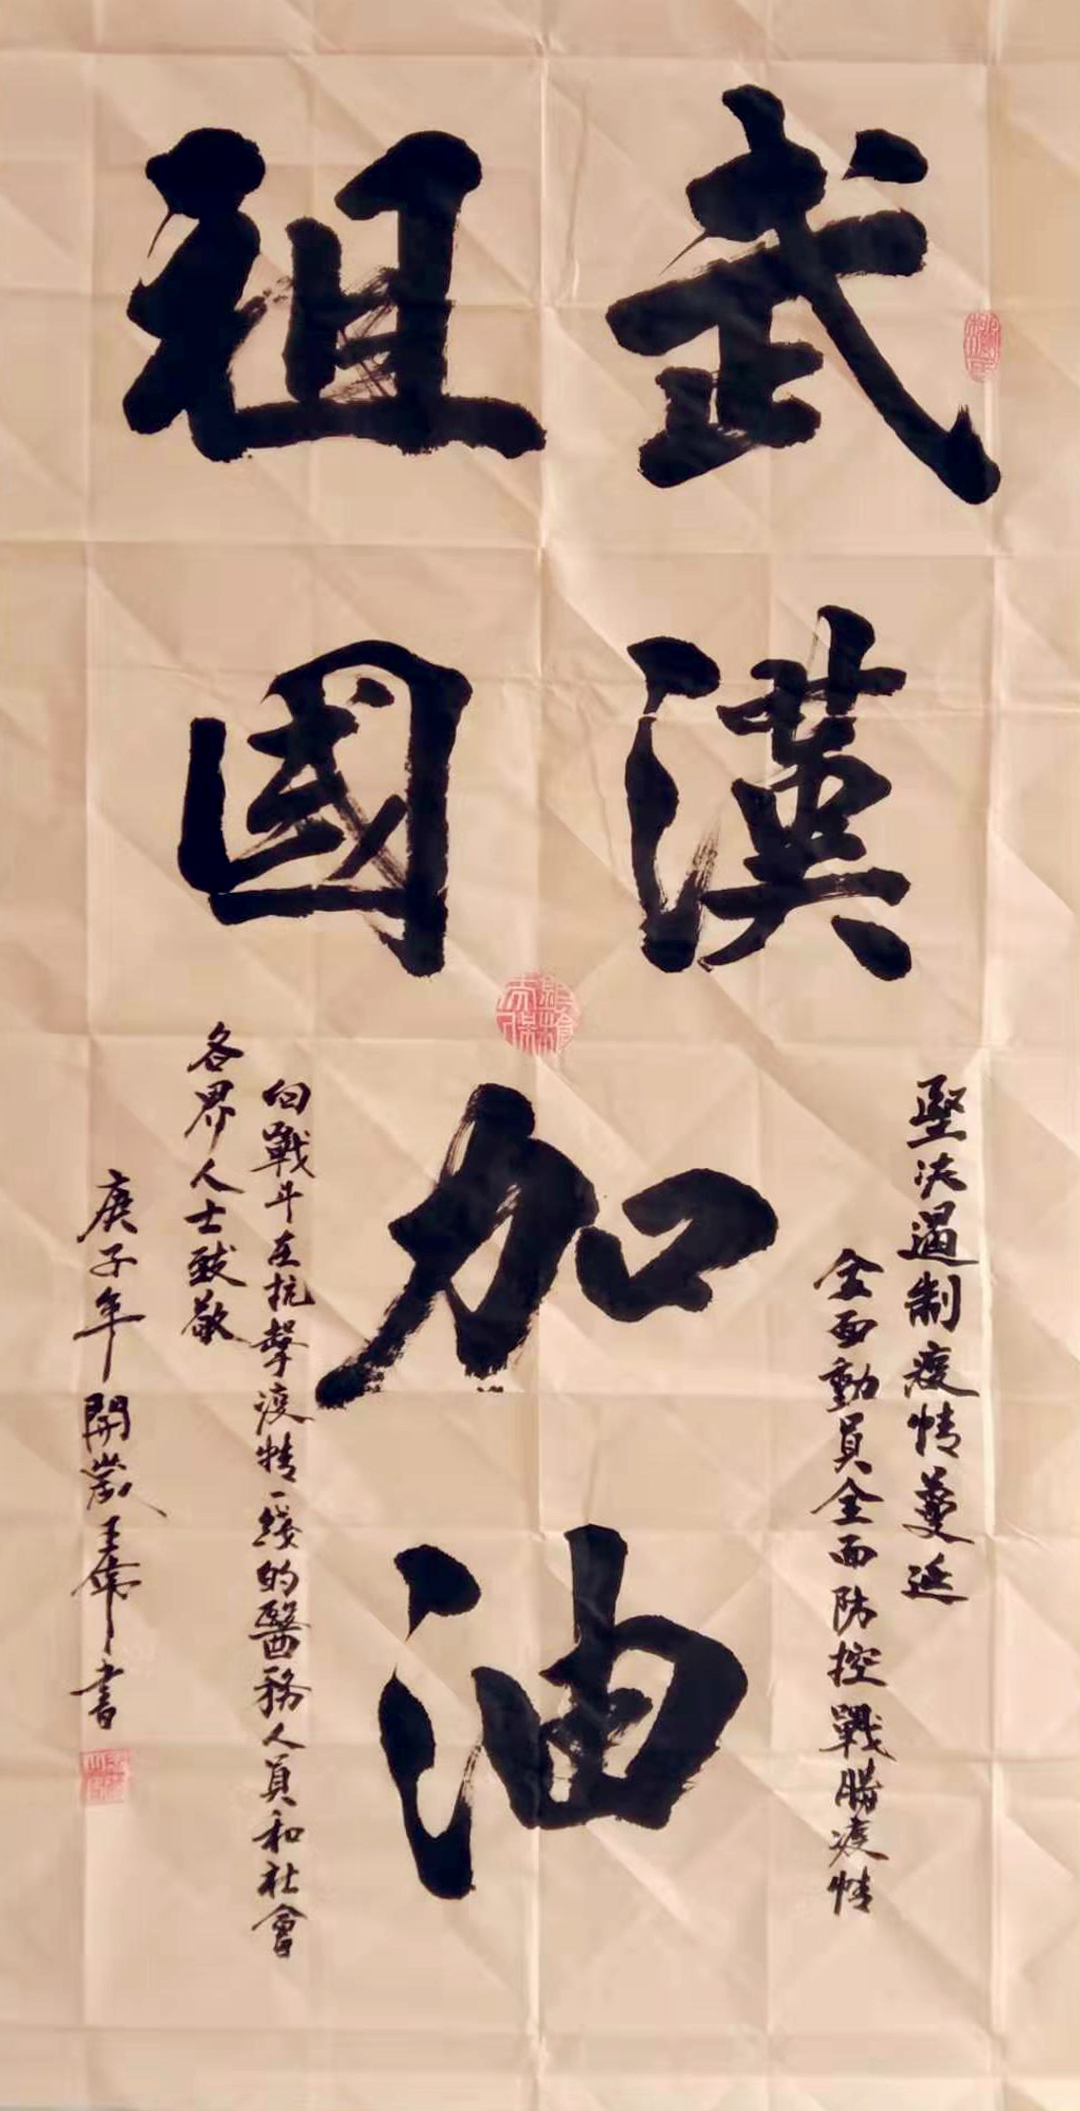 武漢
祖國
加油
堅决遏制疫情蔓延
全面動員全面防控戰勝疫情
向戰斗在抗擊疫情一綫的醫務人員和社會
各界人士致敬
庚子年開歲王偉書